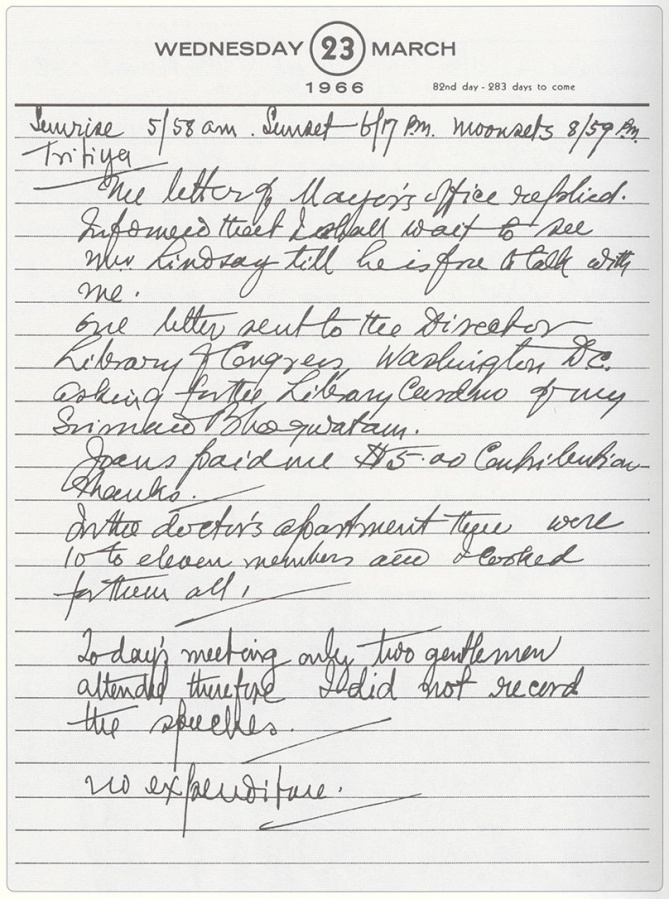 WEDNESDAY 23 MARCH
1966 82nd day - 283 days to come
Sunrise 5/58 am. Sunset 6/17 P.M. Moonsets 8/59 P.M.
Tritiya
The letter of Mayor's office replied.
Informed that I shall wait to see
Mr. Lindsay till he is free to talk with
me.
One letter sent to the Director
Library of Congress, Washington D.C.
asking for the Library Card no of my
Srimad Bhagwatam.
paid me $5.00 Contribution
Thanks.
In the doctor's apartment there were
10 to eleven members and I cooked
for them all.
Today's meeting only two gentlemen
attended therefore I did not record
the speeches.
no expenditure.